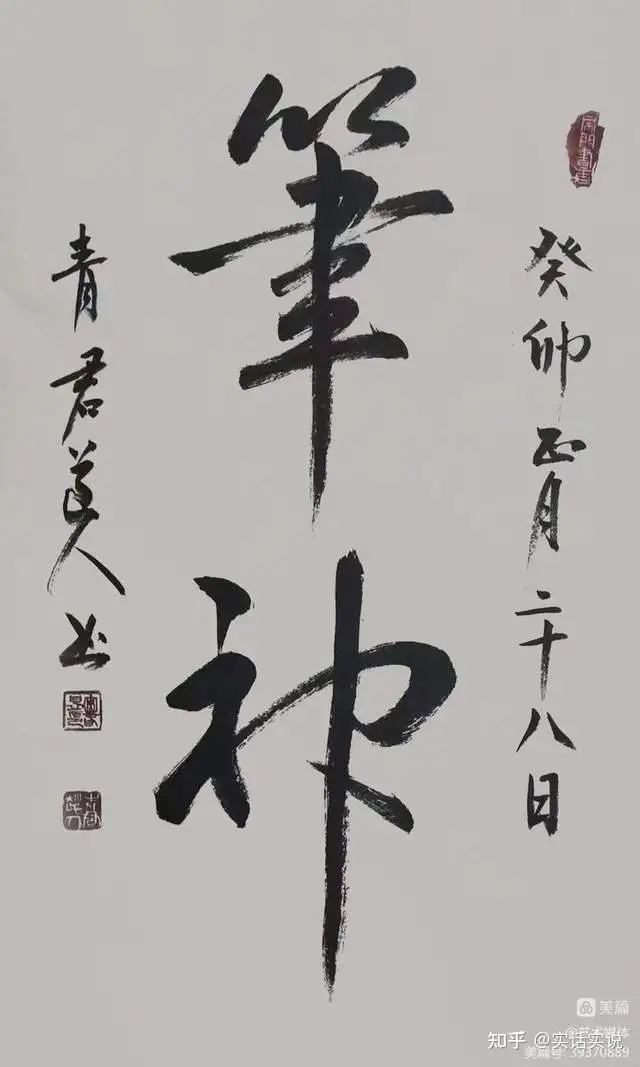 癸卯正月二十八日
筆神
青君道人书
美篇
@艺术媒体
知乎 @实话实说
美篇号: 39370889